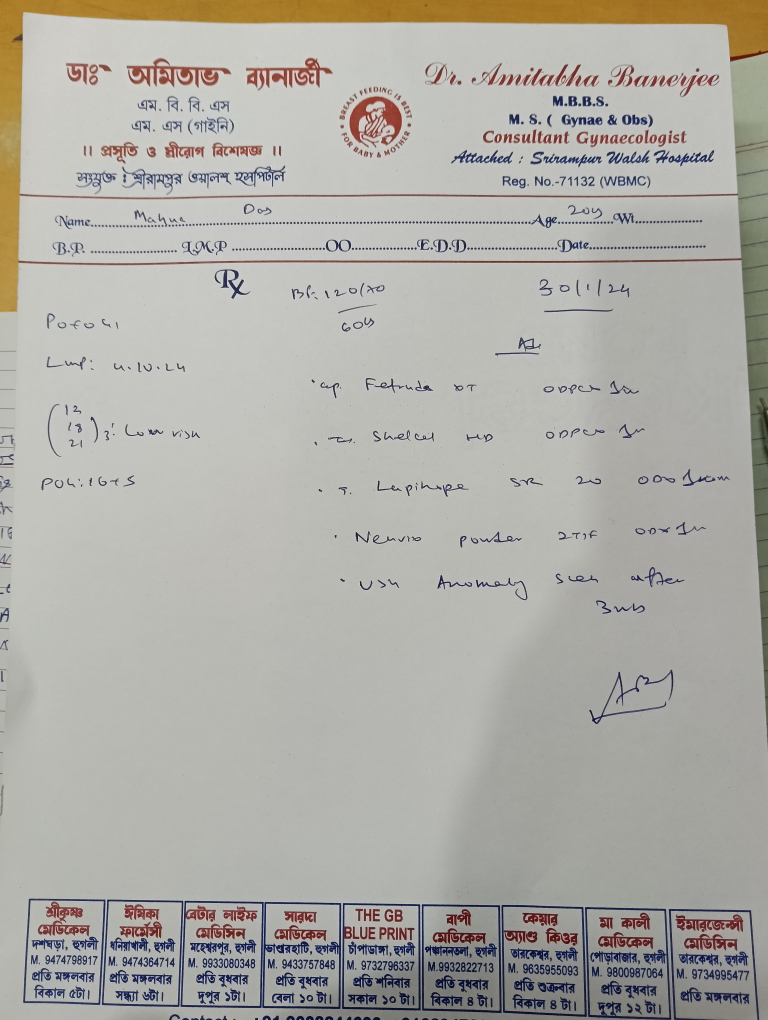 ডাঃ অমিতাভ ব্যানার্জী
এম. বি. বি. এস
এম. এস (গাইনি)
।। প্রসূতি ও স্ত্রীরোগ বিশেষজ্ঞ ।।
সংযুক্ত : শ্রীরামপুর ওয়ালশ হসপিটাল
BREAST FEEDING IS BEST
FOR BABY & MOTHER
Dr. Amitabha Banerjee
M.B.B.S.
M. S. ( Gynae & Obs)
Consultant Gynaecologist
Attached : Srirampur Walsh Hospital
Reg. No.-71132 (WBMC)
Name Das Age 20y Wt
B.P. L.M.P OO E.D.D Date
Rx
BP: 120/70
60
30/1/24
P0+0G1
Lmp: 4.10.24
12
18
21
3: Low risk
POG: 16+5
DT
Shelcal HD
T. SR 20
powder 2TSF
USG Anomaly Scan after
3
শ্রীকৃষ্ণ
মেডিকেল
দশঘড়া, হুগলী
M. 9474798917
প্রতি মঙ্গলবার
বিকাল ৫টা।
ঈষিকা
ফার্মেসী
ধনিয়াখালী, হুগলী
M. 9474364714
প্রতি মঙ্গলবার
সন্ধ্যা ৬টা।
বেটার লাইফ
মেডিসিন
মহেশ্বরপুর, হুগলী
M. 9933080348
প্রতি বুধবার
দুপুর ১টা।
সারদা
মেডিকেল
হুগলী
M. 9433757848
প্রতি বুধবার
বেলা ১০ টা।
THE GB
BLUE PRINT
চাঁপাডাঙ্গা, হুগলী
M. 9732796337
প্রতি শনিবার
সকাল ১০ টা।
বাপী
মেডিকেল
পঞ্চাননতলা, হুগলী
M.9932822713
প্রতি বুধবার
বিকাল ৪ টা।
কেয়ার
অ্যাণ্ড কিওর
তারকেশ্বর, হুগলী
M. 9635955093
প্রতি শুক্রবার
বিকাল ৪ টা।
মা কালী
মেডিকেল
পোড়াবাজার, হুগলী
M. 9800987064
প্রতি বুধবার
দুপুর ১২ টা।
ইমারজেন্সী
মেডিসিন
তারকেশ্বর, হুগলী
M. 9734995477
প্রতি মঙ্গলবার